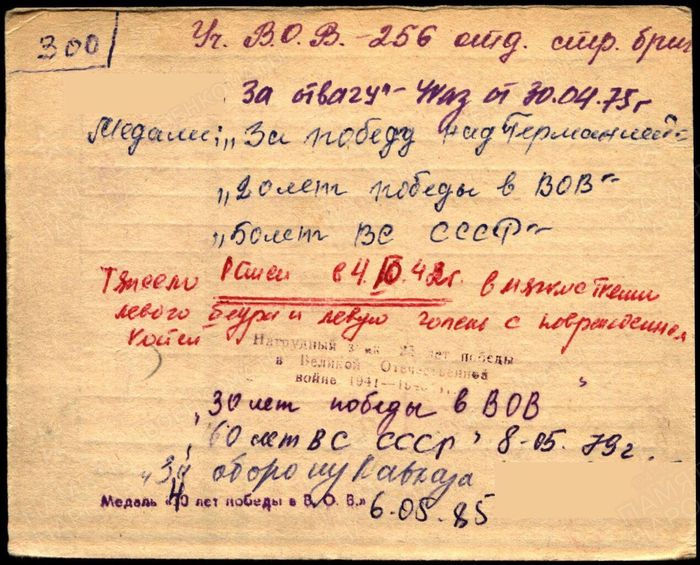 300
Уч. В.О.В. - 256 отд. стр. бриг
За отвагу" - Указ от 30.04.75г
Медали: „За победу над Германией"
„20 лет победы в ВОВ"
„50 лет ВС СССР"
Тяжело в 4. 42г. в мягкие ткани
левого бедра и левую голень с повреждением
костей
Нагрудный знак 25 лет победы
в Великой Отечественной
войне 1941—194
„30 лет победы в ВОВ"
„60 лет ВС СССР" 8-05.79г.
„За оборону Кавказа
Медаль «40 лет победы в В. О. В.» 6.05.85